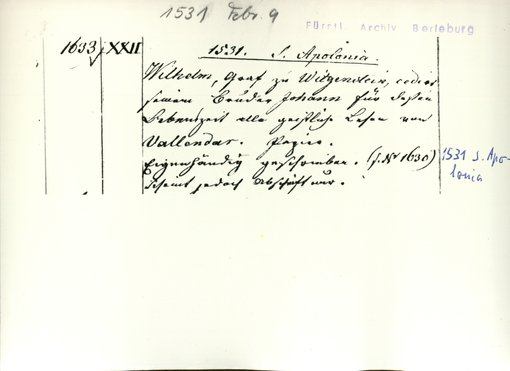 1531 Febr. 9
Fürstl. Archiv Berleburg
1633 XXII 1531. S. Apolonia.
Wilhelm, Graf zu Witgenstein, cedirt
seinem Bruder Johann für dessen
Lebenszeit alle geistliche Lehen von
Vallendar. Papier.
Eigenhändig geschrieben. (f. Nr 1630)
Scheint jedoch Abschrift nur.
1531 S. Apo-
lonia